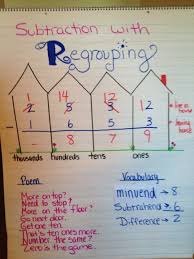 Subtraction with
Regrouping
1 14 12
2 5 3 12 live in house
- 1 6 5 3 leaving house
- 8 7 9
thousands hundreds tens ones
Poem
More on top?
Need to stop!
More on the floor?
Go next door.
Get one ten.
That's ten ones more.
Number the same?
Zero's the game.
Vocabulary
minuend → 8
Subtrahend → 6
Difference → 2